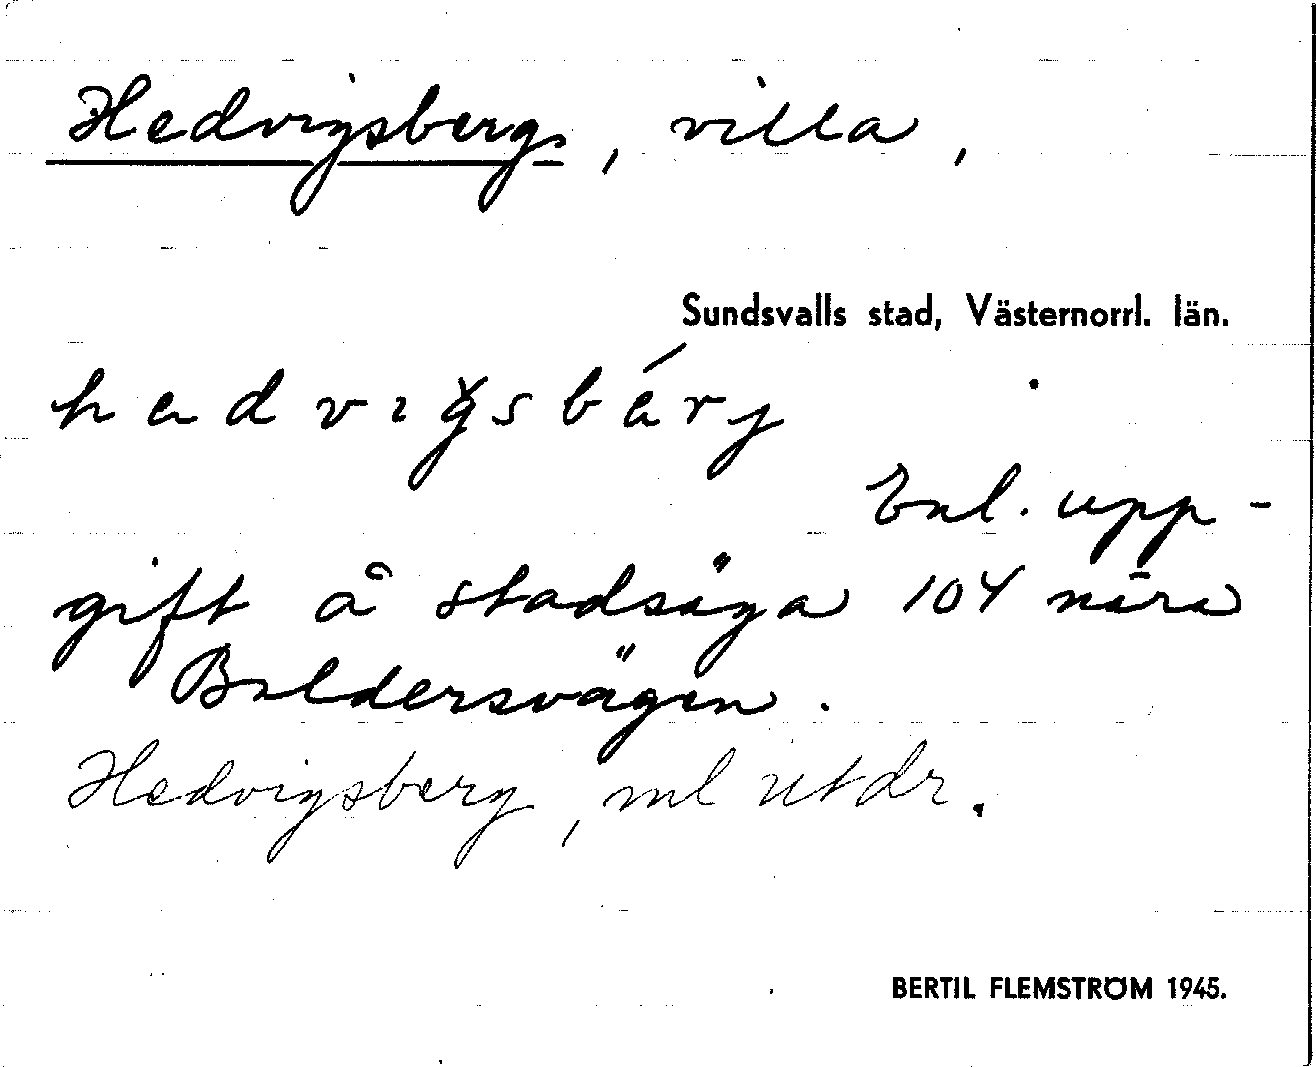 Hedvigsberg, villa,
Sundsvalls stad, Västernorrl. län.
hedvigsbérj
Enl. upp-
gift å stadsäga 104 nära
Baldersvägen.
Hedvigsberg, ml utdr.
BERTIL FLEMSTRÖM 1945.